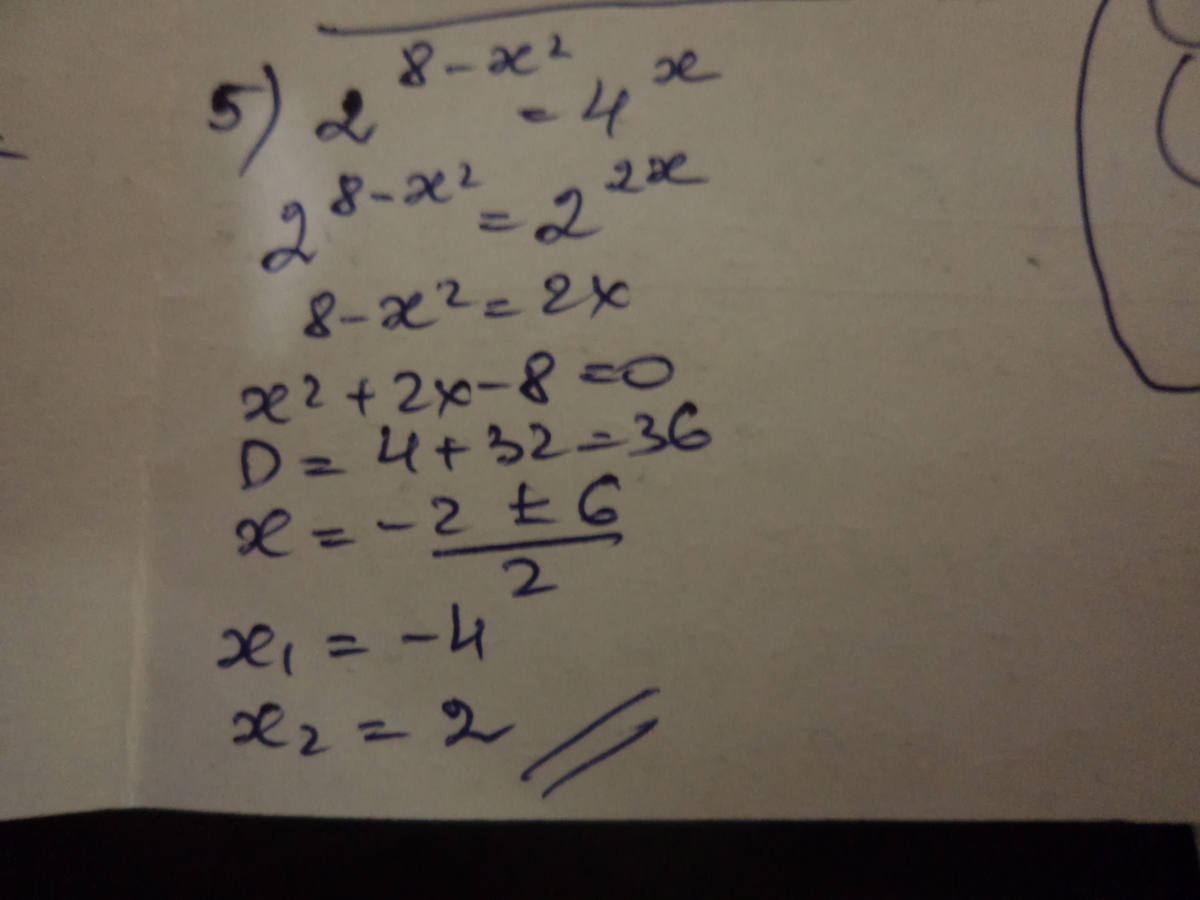 5) 2^{8-x^2} = 4^x
2^{8-x^2} = 2^{2x}
8-x^2 = 2x
x^2 + 2x - 8 = 0
D = 4 + 32 = 36
x = \frac{-2 ± 6}{2}
x_1 = -4
x_2 = 2 //